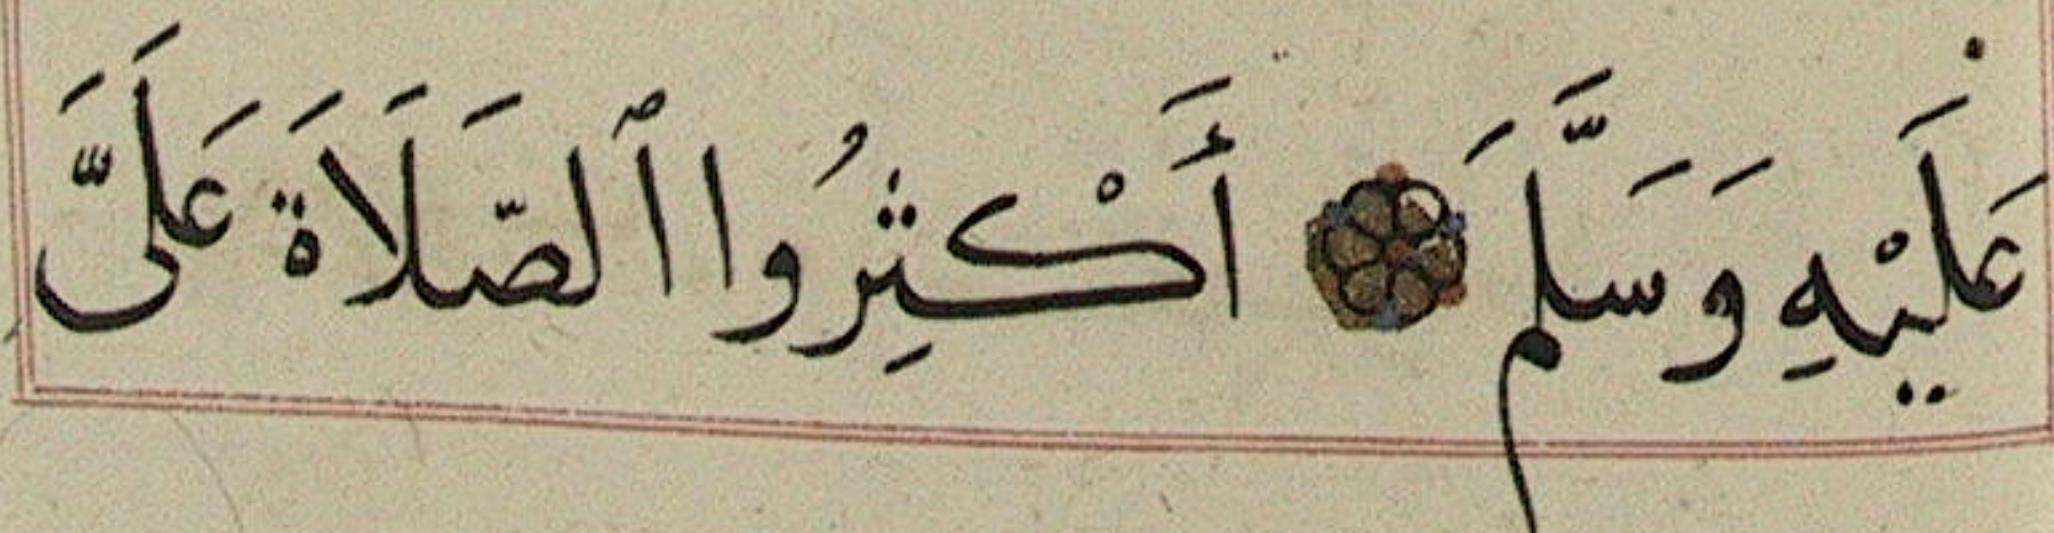 عَلَيْهِ وَسَلَّمَ أَكْثِرُوا ٱلصَّلَاةَ عَلَىَّ